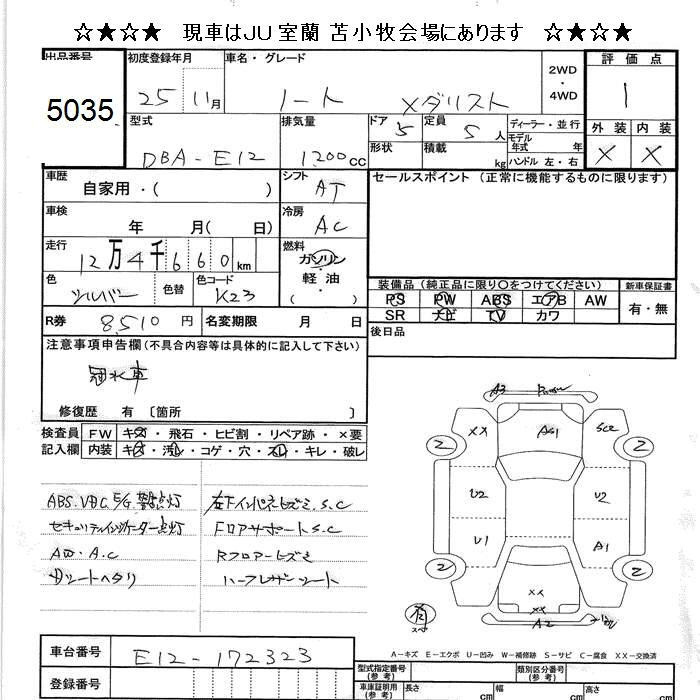 ☆★☆★ 現車はJU室蘭 苫小牧会場にあります ☆★☆★
出品番号 初度登録年月 車名・グレード 2WD・4WD 評価点
5035 25 11月 ノート メダリスト 1
型式 排気量 ドア 5 定員 5人 ディーラー・並行 外装 内装
DBA-E12 1200cc 形状 積載 kg モデル年式 年式 ハンドル 左・右 X X
車歴 自家用・( ) シフト AT セールスポイント (正常に機能するものに限ります)
車検 年 月( 日) 冷房 AC
走行 12万4千660km 燃料 ガソリン 軽・油 ( )
色 シルバー 色替 色コード K23
装備品(純正品に限り○をつけてください) 新車保証書
PS PW ABS エアB AW 有・無
SR ナビ TV カワ
R券 8510円 名変期限 月 日 後日品
注意事項申告欄(不具合内容等は具体的に記入して下さい)
冠水車
修復歴 有 〔箇所 〕
検査員 FW キズ・飛石・ヒビ割・リペア跡・×要
記入欄 内装 キズ・汚レ・コゲ・穴・スレ・キレ・破レ
ABS.VDC.E/G.警告点灯 左下インパネヒズミ.S.C
セキュリティインジケーター点灯 FロアサポートS.C
A臭・A.C Rフロアーヒズミ
シートヘタリ ハーフレザーシート
A3
XX AG1 SC2
2 2
U2 U2
U1 A1
2 2
XX
XX
A2
スペ
A-キズ E-エクボ U-凹み W-補修跡 S-サビ C-腐食 XX-交換済
車台番号 E12-172323
登録番号
型式指定番号(参考) 類別区分番号(参考)
車庫証明用(参考) 長さ cm 幅 cm 高さ cm